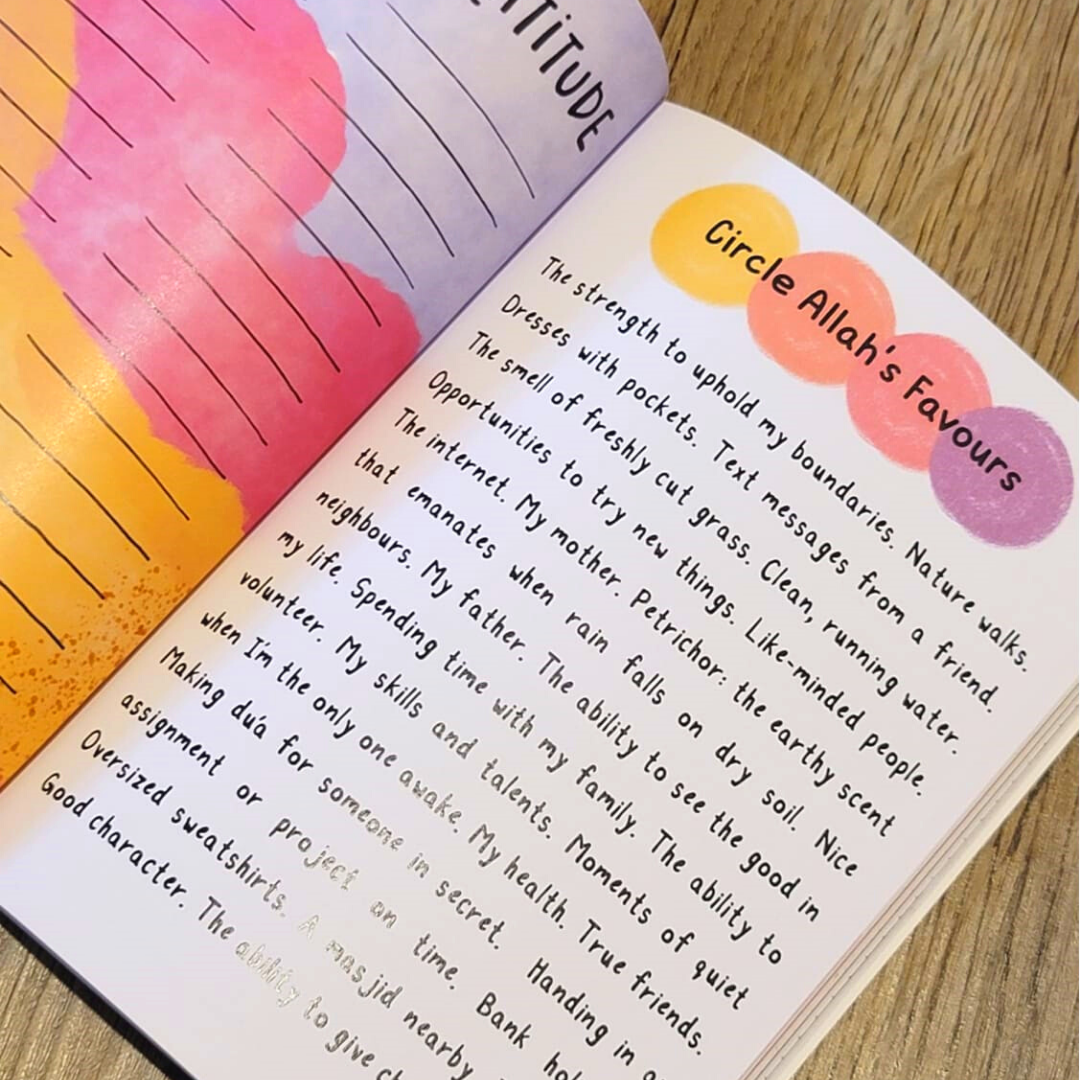 TITUDE
Circle Allah's Favours
The strength to uphold my boundaries. Nature walks.
Dresses with pockets. Text messages from a friend.
The smell of freshly cut grass. Clean, running water.
Opportunities to try new things. Like-minded people.
The internet. My mother. Petrichor: the earthy scent
that emanates when rain falls on dry soil. Nice
neighbours. My father. The ability to see the good in
my life. Spending time with my family. The ability to
volunteer. My skills and talents. Moments of quiet
when I'm the only one awake. My health. True friends.
Making du'a for someone in secret. Handing in
assignment or project on time. Bank hol
Oversized sweatshirts. A masjid nearby
Good character. The ability to give ch